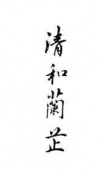 清和蘭芷